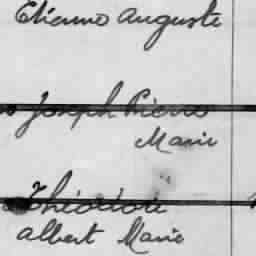 Etienne Auguste
Joseph Pierre
Marie
Théodore
Albert Marie